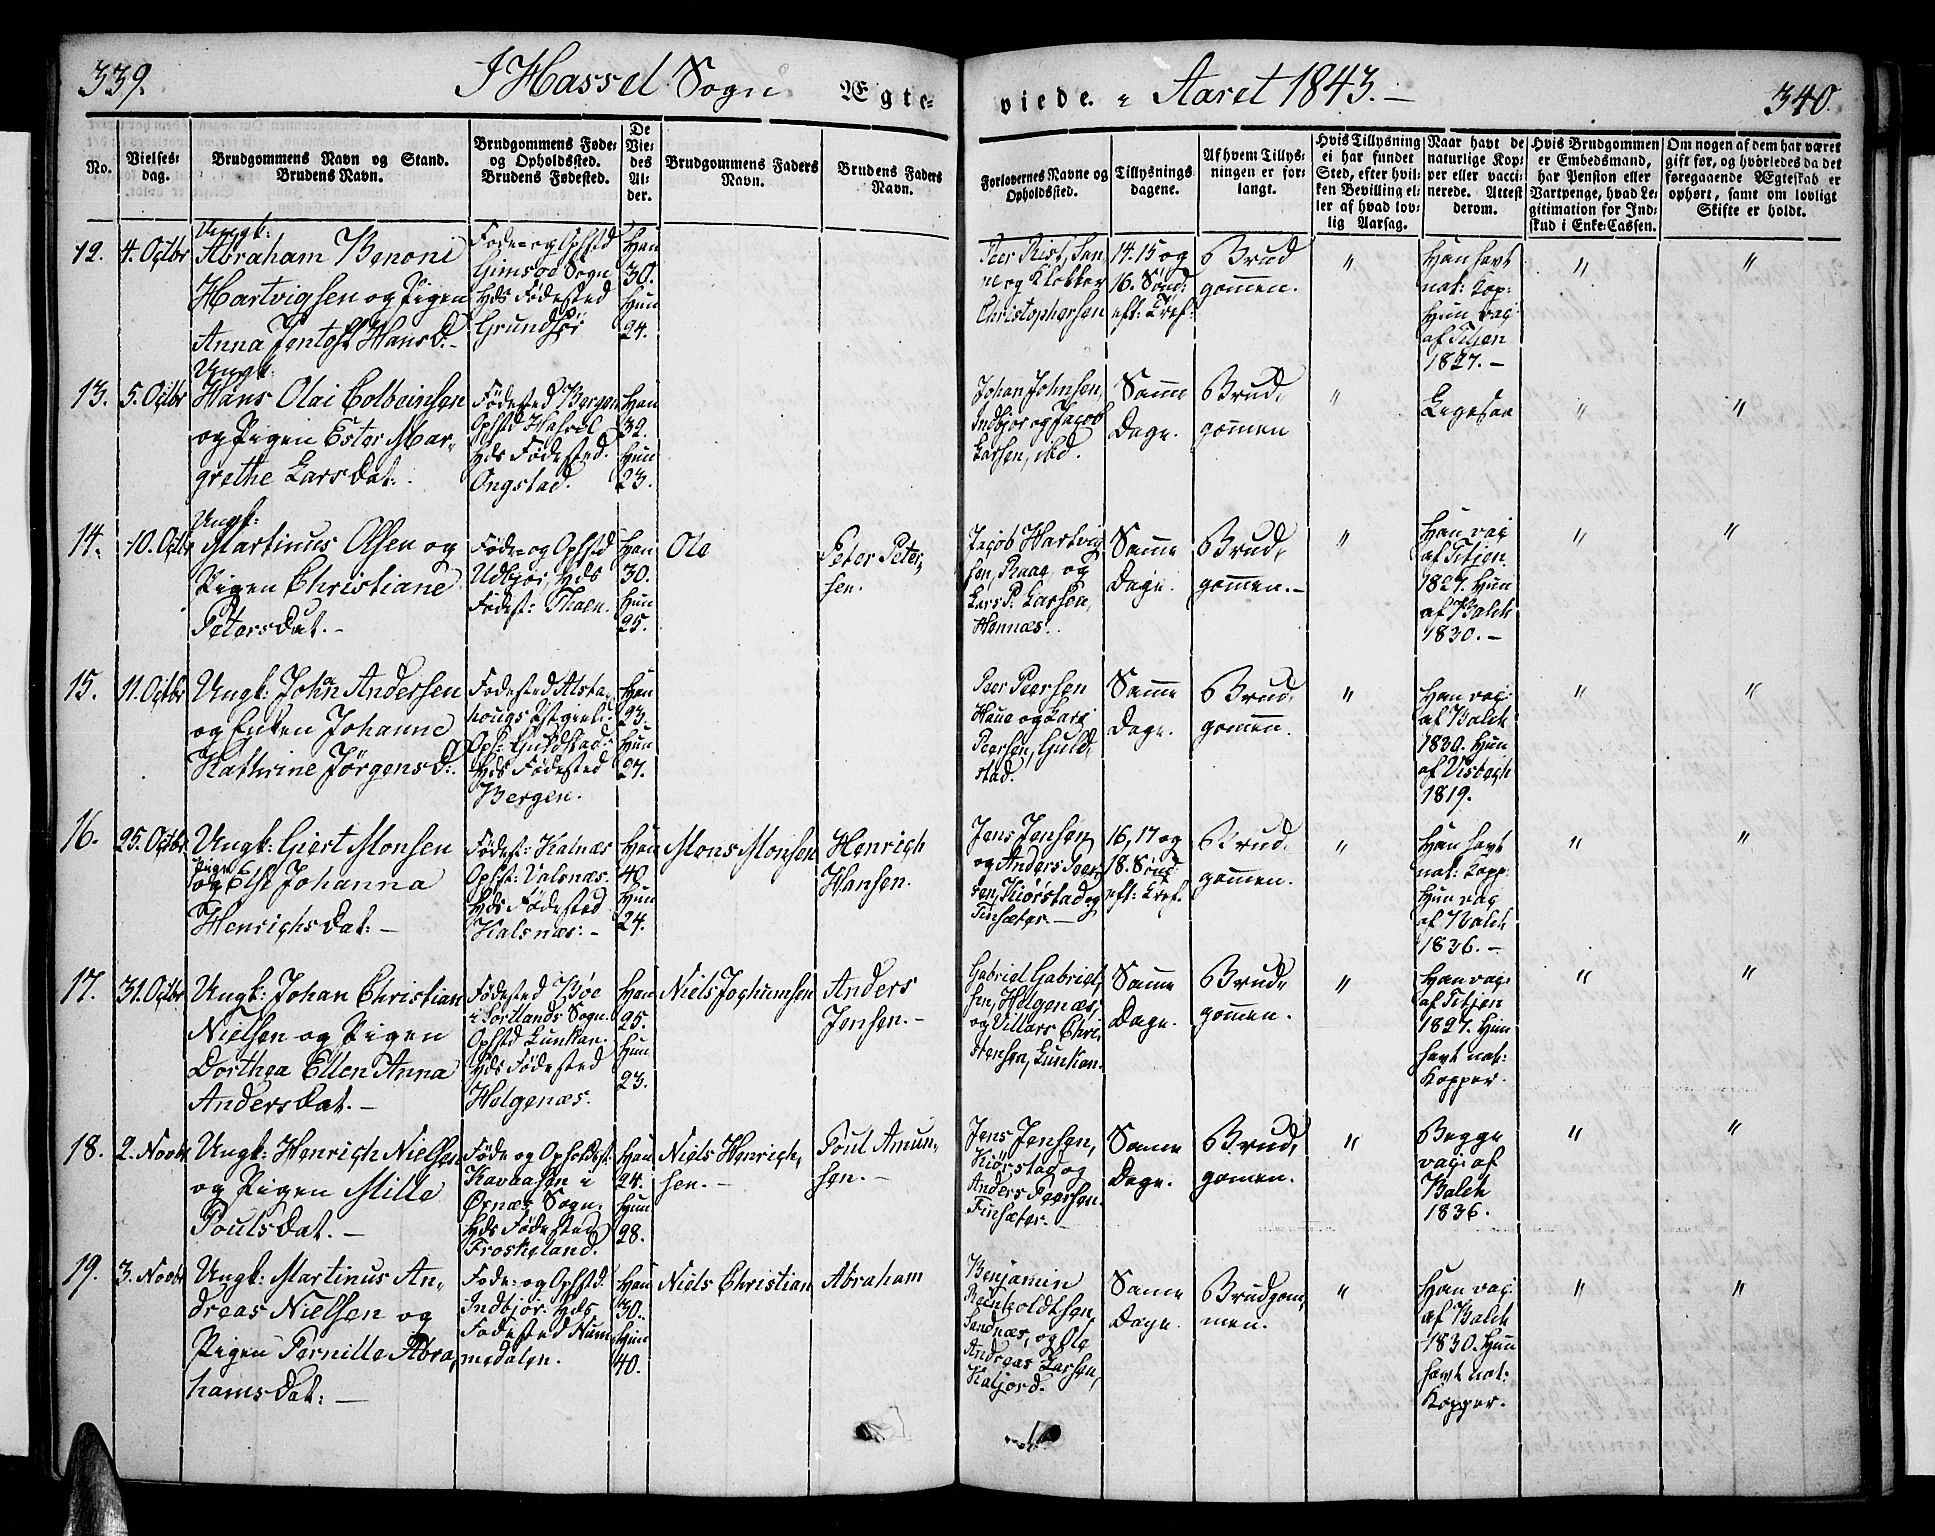 339.
I Hassel Sogn Ægte-
viede. Aaret 1843.
340.
No.
Vielses-
dag.
Brudgommens Navn og Stand.
Brudens Navn.
Brudgommens Føde-
og Opholdssted.
Brudens Fødested.
De
Vie-
des
Al-
der.
Brudgommens Faders
Navn.
Brudens Faders
Navn.
Forlovernes Navne og
Opholdssted.
Tillysnings
dagene.
Af hvem Tillys-
ningen er for-
langt.
Hvis Tillysning
ei har fundet
Sted, efter hvil-
ken Bevilling el-
ler af hvad lov-
lig Aarsag.
Naar havt de
naturlige Kop-
per eller vacci-
nerede. Attest
derom.
Hvis Brudgommen
er Embedsmand,
har Pension eller
Vartpenge, hvad Le-
gitimation for Ind-
skud i Enke-Cassen.
Om nogen af dem har været
gift før, og hvorledes da det
foregaaende Ægteskab er
ophørt, samt om lovligt
Skifte er holdt.
12.
4. Octbr
Ungk:
Abraham Benoni
Hartvigsen og Pigen
Anna Jentoft HansD.
Føde- og Ophstd
Gimsøe Sogn
Hds Fødested
Grundfør
Han
30.
Hun
24.
Peer Rist, San
ne og Klokker
Christophersen
14. 15 og
16. Sønd:
eft: Tref:
Brud
gommen.
"
Han havt
nat: Kop:
Hun vac:
af Titjen
1827.
"
"
13.
5. Octbr
Ungk:
Hans Olai Colbeinsen
og Pigen Ester Mar-
grethe LarsDat:
Fødested Bergen
Ophstd Hassel
Hds Fødested.
Ongstad.
Han
32.
Hun
23.
Johan Johnsen,
Indbjor og Jacob
Larsen, ibd.
Samme
Dage.
Brud,
gommen
"
Ligesaa
"
"
14.
10. Octbr
Ungk:
Martinus Olsen og
Pigen Christiane
PetersDat.
Føde- og Ophstd
Udbjor, Hds
Fødest: Thoen.
Han
30.
Hun
25.
Ole
Peter Peter-
sen.
Jacob Hartvig
sen, Praae, og
Lars P. Larsen,
Hennæs.
Samme
Dage.
Brud,
gommen.
"
Han vac
af Titjen
1827. Hun
af Balch
1830.
"
"
15.
11. Octbr
Ungk: Johan Andersen
og Enken Johanne
Kathrine JørgensD:
Fødested Alsta-
hougs Pstgield:
Oph: Guldstad:
Hds Fødested
Bergen.
Han
23.
Hun
27.
Peer Peersen
Haue og Lars
Peersen, Guld,
stad.
Samme
Dage.
Brud,
gomen.
"
Han vac:
af Balch
1830. Hun
af Visbech
1819.
"
"
16.
25. Octbr
Ungk: Giert Monsen
Pigen
og Else Johanna
HenrichsDat:
Fødest: Kalnæs
Ophst: Valsnæs.
Hds Fødested
Kalsnæs:
Han
40
Hun
24.
Mons Monsen
Henrich
Hansen.
Jens Jensen
og Anders Peer-
sen, Kiørstad og
Finsæter.
16, 17 og
18. Sønd:
eft: Tref.
Brud,
gomen.
"
Han havt
nat: Kopp:
Hun vac
af Balch
1836.
"
"
17.
31. Octbr
Ungk: Johan Christian
Nielsen og Pigen
Dorthea Ellen Anna
AndersDat.
Fødested Bøe
i Sortlands Sogn.
Ophstd Lunkan.
Hds Fødested
Helgenæs.
Han
25.
Hun
23.
Niels Jochumsen
Anders
Jensen.
Gabriel Gabriel,
sen, Helgenæs,
og Villars Chri-
stensen, Lunkan.
Samme
Dage.
Brud,
gomen.
"
Han vac:
af Titjen
1827. Hun
havt nat:
Kopper.
"
"
18.
2. Novbr
Ungk: Henrich Nielsen
og Pigen Mille
PoulsDat.
Føde og Opholdst:
Kavaasen i
Øxnæs Sogn.
Hds Fødested
Froskeland.
Han
24.
Hun
28.
Niels Henrich,
sen.
Poul Amun-
sen.
Jens Jensen,
Kiørstad og
Anders Peersen
Finsæter.
Same
Dage.
Brud,
gomen.
"
Begge
vac: af
Balch
1836.
"
"
19.
3. Novbr
Ungk: Martinus An-
dreas Nielsen og
Pigen Pernille Abra,
hamsDat:
Føde- og Ophstd.
Indbjør. Hds
Fødested Num-
medalen.
Han
30.
Hun
40.
Niels Christian
Abraham
Benjamin
Reinholdtsen,
Sandnæs, og Ole
Andreas Larsen,
Kaljord.
Same
Dage.
Brudgom,
men.
"
Han vac:
af Balch
1830. Hun
havt nat:
Kopper.
"
"